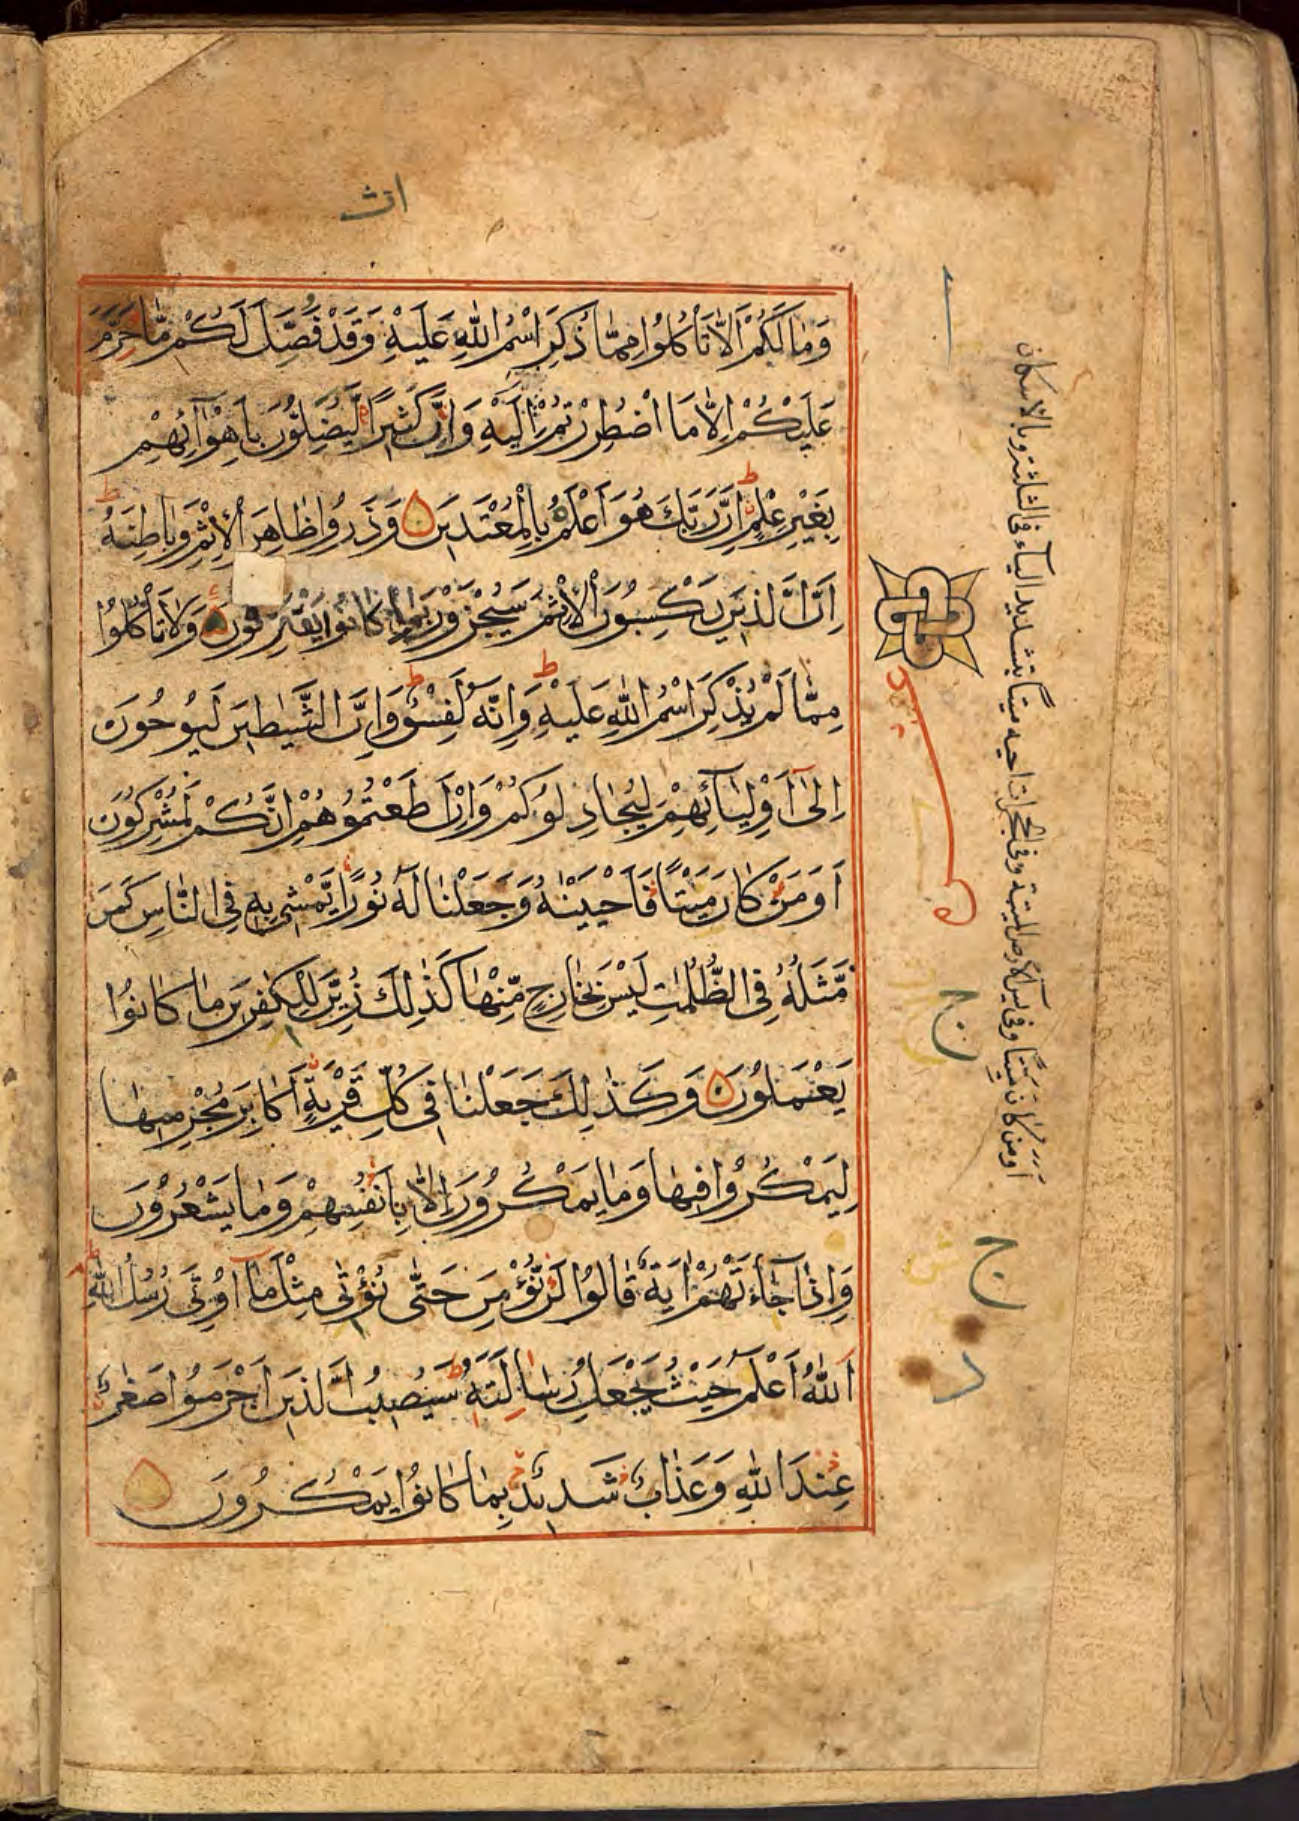 اث
وَمَا لَكُمْ اَلَّا تَاْكُلُوْا مِمَّا ذُكِرَ اسْمُ اللّٰهِ عَلَيْهِ وَقَدْ فُصِّلَ لَكُمْ مَّا حُرِّمَ
عَلَيْكُمْ اِلَّا مَا اضْطُرِرْتُمْ اِلَيْهِ وَاِنَّ كَثِيْرًا لَّيُضِلُّوْنَ بِاَهْوَآئِهِمْ
بِغَيْرِ عِلْمٍ ط اِنَّ رَبَّكَ هُوَ اَعْلَمُ بِالْمُعْتَدِيْنَ وَذَرُوْا ظَاهِرَ الْاِثْمِ وَبَاطِنَهُ ط
اِنَّ الَّذِيْنَ يَكْسِبُوْنَ الْاِثْمَ سَيُجْزَوْنَ بِمَا كَانُوْا يَقْتَرِفُوْنَ وَلَا تَاْكُلُوْا
مِمَّا لَمْ يُذْكَرِ اسْمُ اللّٰهِ عَلَيْهِ ط وَاِنَّهٗ لَفِسْقٌ ط وَاِنَّ الشَّيٰطِيْنَ لَيُوْحُوْنَ
اِلٰٓى اَوْلِيٰٓائِهِمْ لِيُجَادِلُوْكُمْ وَاِنْ اَطَعْتُمُوْهُمْ اِنَّكُمْ لَمُشْرِكُوْنَ
اَوَمَنْ كَانَ مَيْتًا فَاَحْيَيْنٰهُ وَجَعَلْنَا لَهٗ نُوْرًا يَّمْشِيْ بِهٖ فِي النَّاسِ كَمَنْ
مَّثَلُهٗ فِي الظُّلُمٰتِ لَيْسَ بِخَارِجٍ مِّنْهَا كَذٰلِكَ زُيِّنَ لِلْكٰفِرِيْنَ مَا كَانُوْا
يَعْمَلُوْنَ وَكَذٰلِكَ جَعَلْنَا فِيْ كُلِّ قَرْيَةٍ اَكَابِرَ مُجْرِمِيْهَا
لِيَمْكُرُوْا فِيْهَا وَمَا يَمْكُرُوْنَ اِلَّا بِاَنْفُسِهِمْ وَمَا يَشْعُرُوْنَ
وَاِذَا جَآءَتْهُمْ اٰيَةٌ قَالُوْا لَنْ نُّؤْمِنَ حَتّٰى نُؤْتٰى مِثْلَ مَآ اُوْتِيَ رُسُلُ اللّٰهِ ط
اَللّٰهُ اَعْلَمُ حَيْثُ يَجْعَلُ رِسَالَتَهٗ ط سَيُصِيْبُ الَّذِيْنَ اَجْرَمُوْا صَغَارٌ
عِنْدَ اللّٰهِ وَعَذَابٌ شَدِيْدٌ بِمَا كَانُوْا يَمْكُرُوْنَ
اومن كان ميتا وفى يس الارض الميتة وفى الحجرات اخيه ميتا بتشديد الياء فى الثلاثة وبالاسكان
ج
ج
د